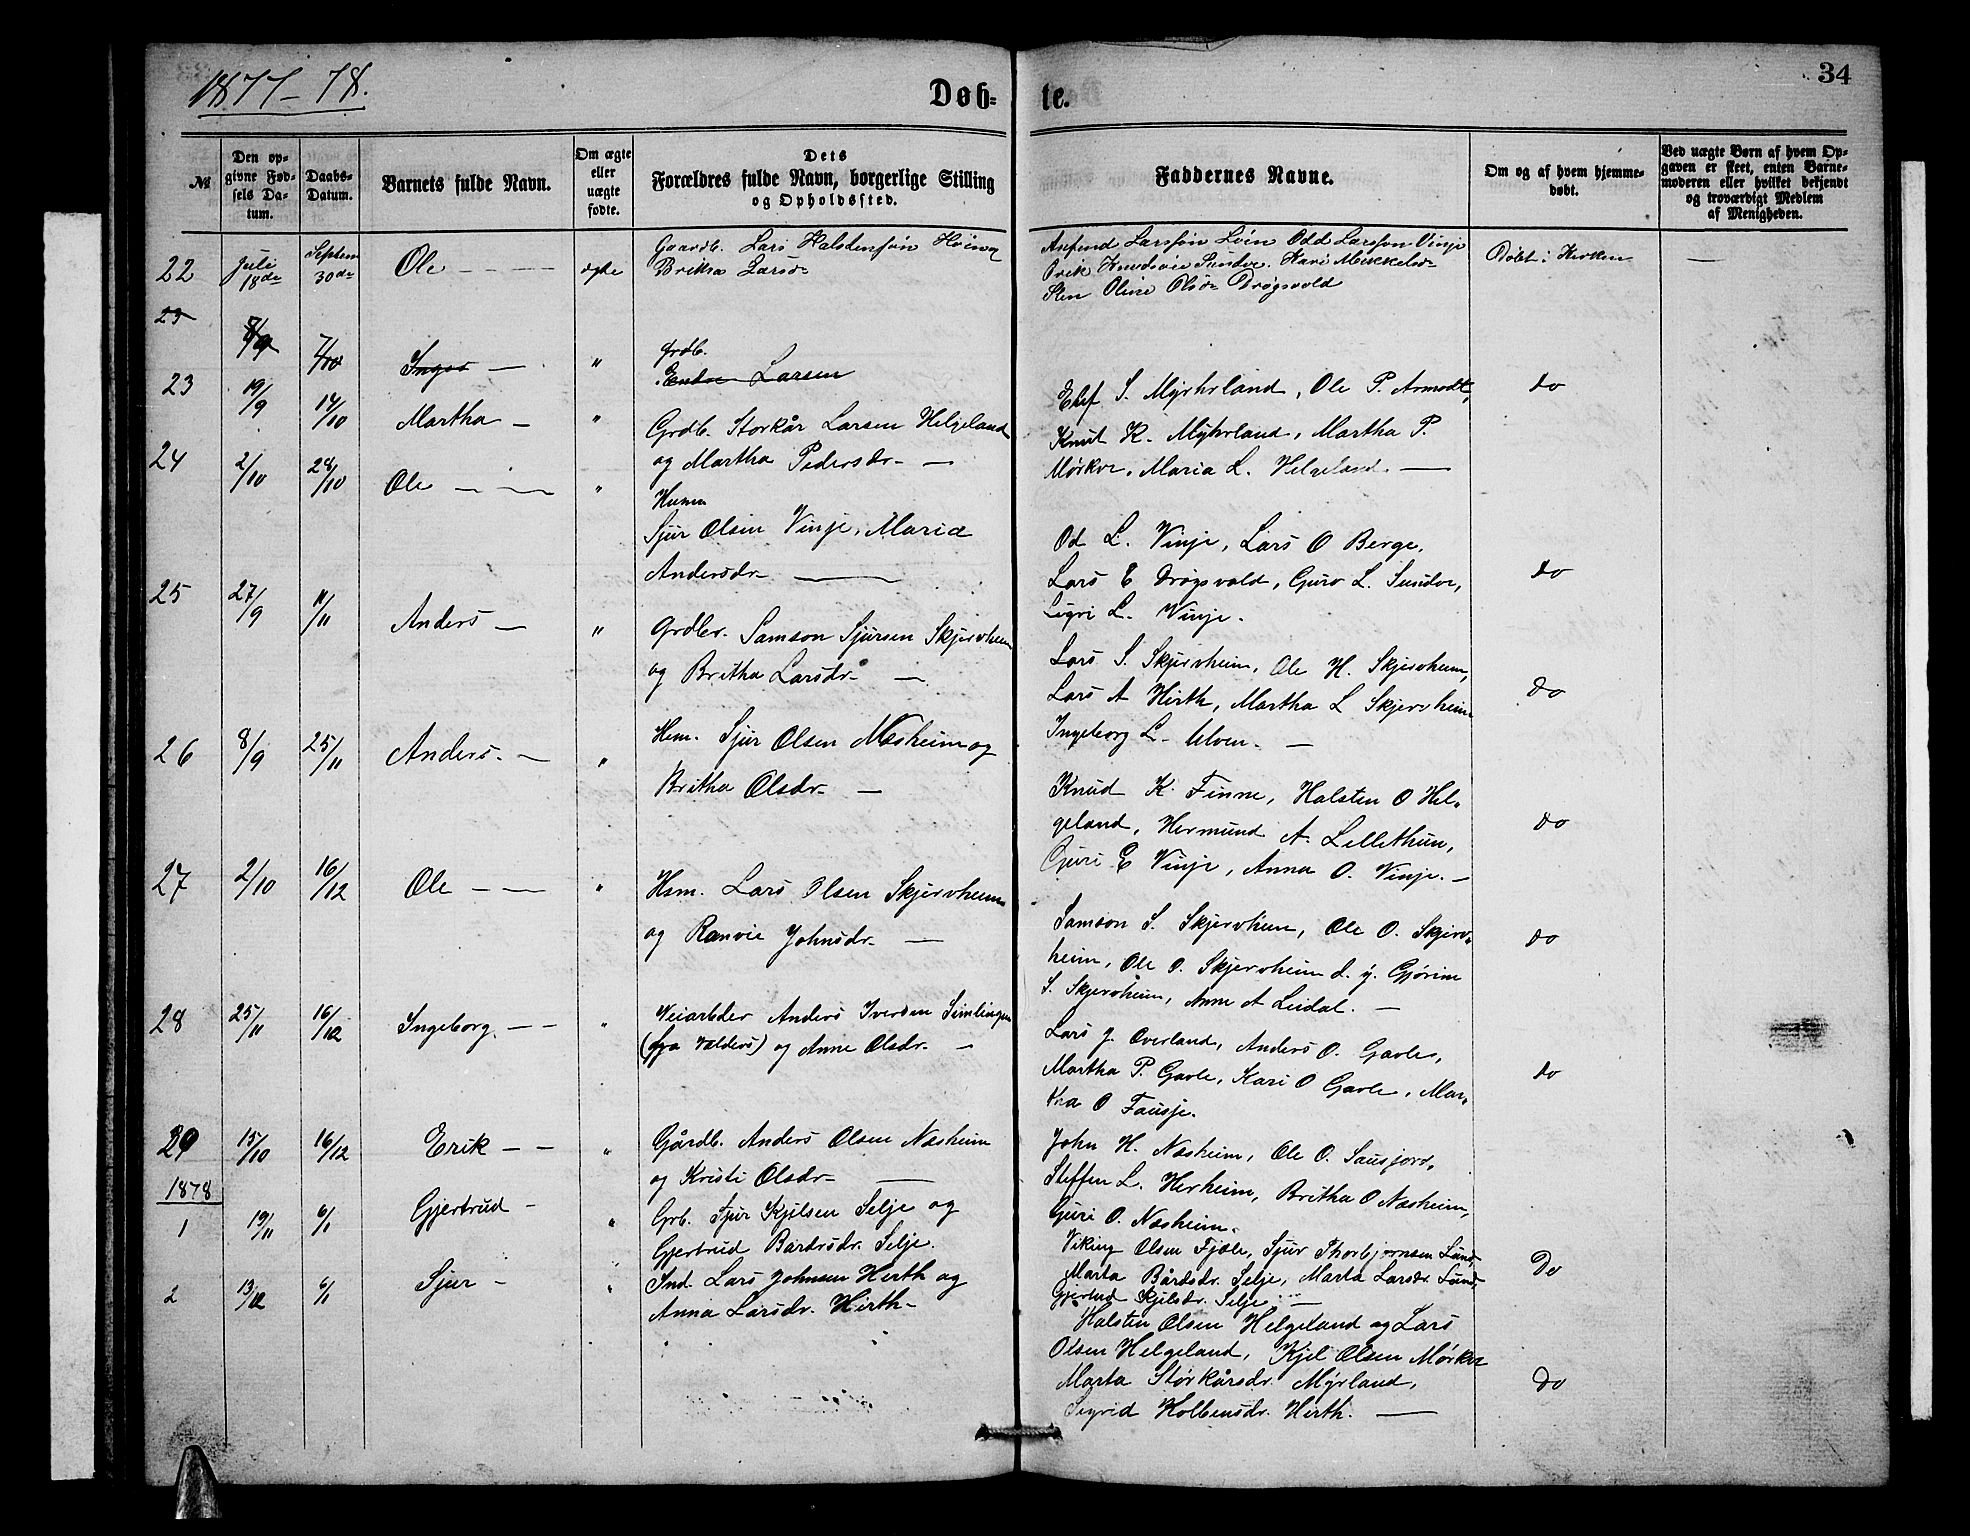 1877-78.
Døb-
te.
34
№
Den op-
givne Fød-
sels Da-
tum.
Daabs-
Datum.
Barnets fulde Navn.
Om ægte
eller
uægte
fødte.
Dets
Forældres fulde Navn, borgerlige Stilling
og Opholdssted.
Faddernes Navne.
Om og af hvem hjemme-
døbt.
Ved uægte Børn af hvem Op-
gaven er skeet, enten Barne-
moderen eller hvilket bekjendt
og troværdigt Medlem
af Menigheden.
22
Juli
18de
Septem
30de
Ole
ægte
Gaardb. Lars Halstensøn
Britha Larsdr
Larssøn Løin Odd Larssøn Vinje
Erik Knudsøn Sundve. Kari Mikkelsdr
Oline Olsdr Drøgsvold
Døbt i Kirken
23
7/10
Inger
"
Grdb.
Endre Larsen
23
19/9
14/10
Martha
"
Grdb. Storkår Larsen Helgeland
og Martha Pedersdr.
Elef S. Myhrland, Ole P. Armodt,
Knut K. Myhrland, Martha P.
Mørkve, Maria L. Helgeland.
do
24
2/10
28/10
Ole
"
Husm
Sjur Olsen Vinje, Maria
Andersdr
Od L. Vinje, Lars O Berge,
Lars E Drøgsvold, Guro L. Sundve,
Sigri L. Vinje.
do
25
27/9
11/11
Anders
"
Grdbr. Samson Sjursen Skjervheim
og Britha Larsdr
Lars S. Skjervheim, Ole H. Skjervheim,
Lars A Hirth, Martha L Skjervheim
Ingeborg L. Ulven.
do
26
8/9
25/11
Anders
"
Hsm. Sjur Olsen Næsheim og
Britha Olsdr
Knud K. Finne, Halsten O Hel-
geland, Hermund A. Lillethun,
Guri E Vinje, Anna O. Vinje.
do
27
2/10
16/12
Ole
"
Hsm. Lars Olsen Skjervheim
og Ranvie Johnsdr
Samson S. Skjervheim, Ole O. Skjerv-
heim, Ole O. Skjervheim d. y. Gjørine
S. Skjervheim, Anne A Leidal.
do
28
25/11
16/12
Ingeborg.
"
Veiarbder Anders Iversen Simlingen
(fra Valders) og Anne Olsdr.
Lars J. Overland, Anders O. Gavle,
Martha P. Gavle, Kari O Gavle, Mar-
tha O Tausje.
do
29
15/10
16/12
Erik
"
Gårdb. Anders Olsen Næsheim
og Kristi Olsdr
John H. Næsheim, Ole O. Sausjord,
Steffen L. Herheim, Britha O Næsheim,
Guri O. Næsheim.
1878
1
19/11
6/1
Gjertrud
"
Grb. Sjur Kjelsen Selje og
Gjertrud Bårdsdr. Selje.
Viking Olsen Fjose, Sjur Thorbjørnsen Lund,
Marta Bårdsdr. Selje, Marta Larsdr Lund,
Gjertrud Kjelsdr. Selje
Do
2
13/12
6/1
Sjur
"
Ind. Lars Johnsen Hirth og
Anna Larsdr. Hirth
Halsten Olsen Helgeland og Lars
Olsen Helgeland, Kjel Olsen Mørkve
Marta Storkårsdr. Myrland,
Sigrid Kolbensdr. Hirth.
do